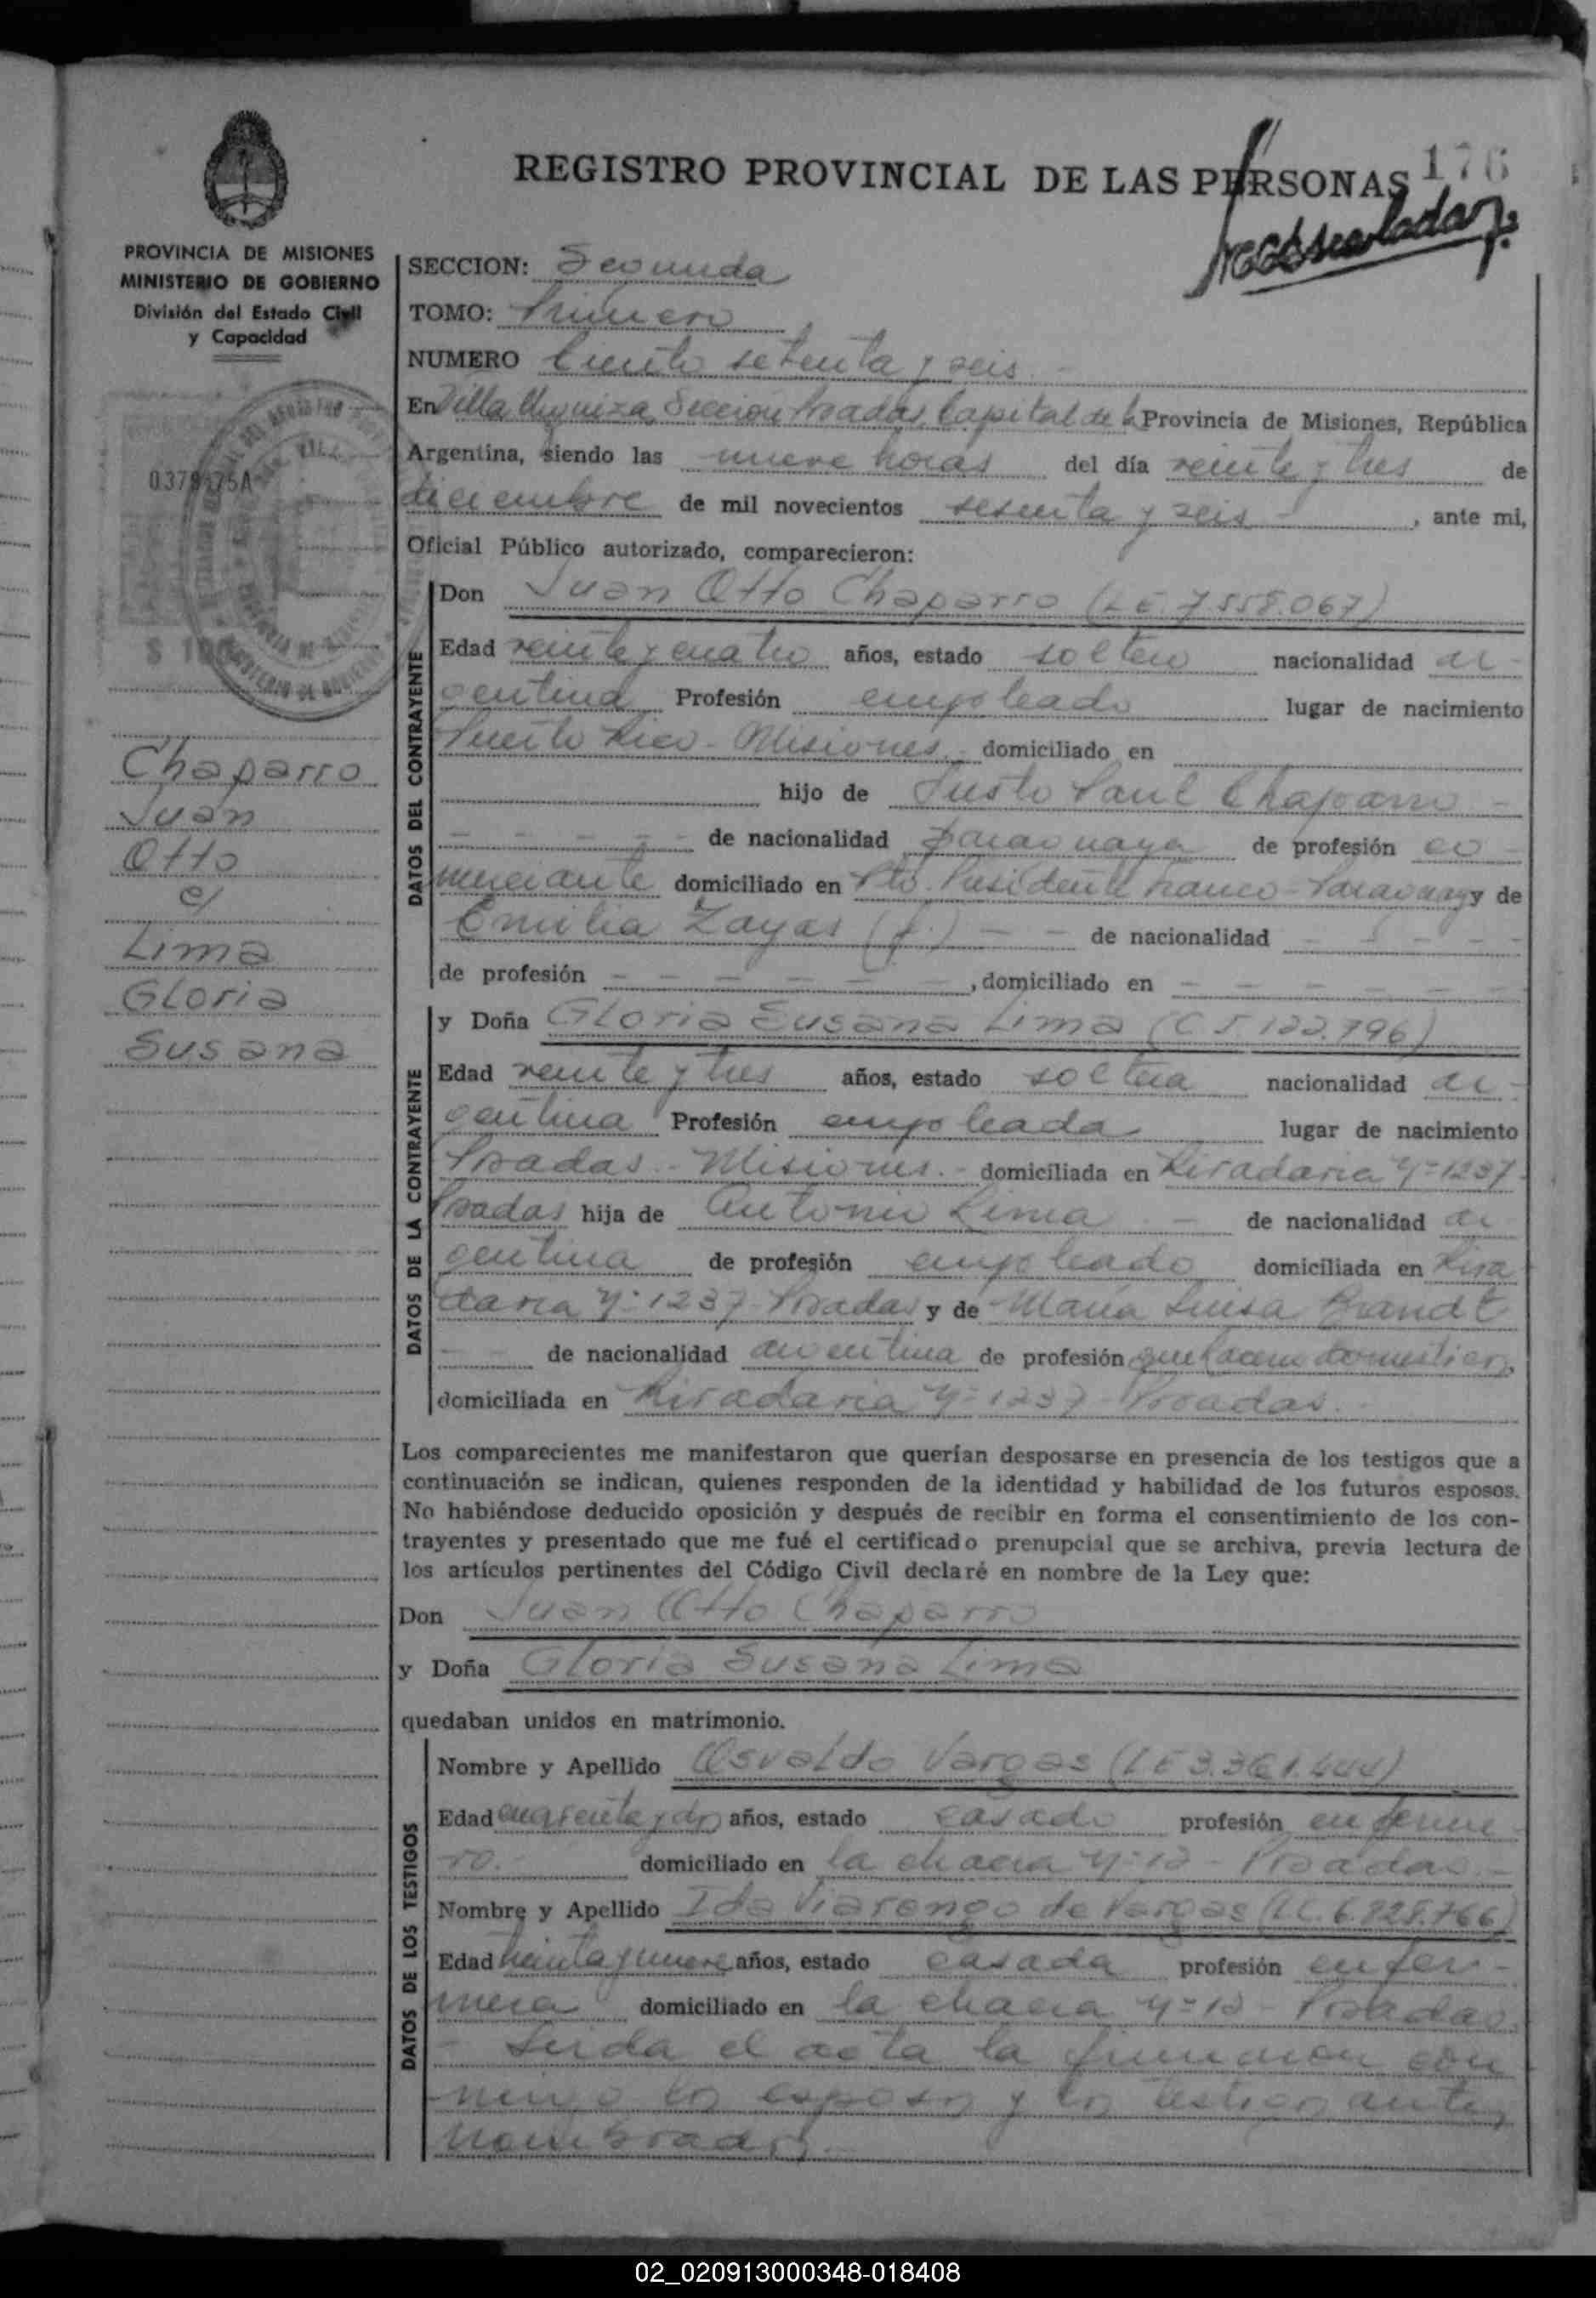 REGISTRO PROVINCIAL DE LAS PERSONAS 176
PROVINCIA DE MISIONES
MINISTERIO DE GOBIERNO
División del Estado Civil
y Capacidad
0379175A
$ 100
Chaparro
Juan
Otto
c/
Lima
Gloria
Susana
SECCION: Segunda
TOMO: Primero
NUMERO Ciento setenta y seis
En Villa Urquiza, Sección Posadas, Capital de la Provincia de Misiones, República
Argentina, siendo las nueve horas del día veinte y tres de
diciembre de mil novecientos sesenta y seis, ante mi,
Oficial Público autorizado, comparecieron:
DATOS DEL CONTRAYENTE
Don Juan Otto Chaparro (L E. 7.558.067)
Edad veinte y cuatro años, estado soltero nacionalidad ar-
gentina Profesión empleado lugar de nacimiento
Puerto Rico - Misiones.- domiciliado en
hijo de Justo Chaparro -
- - - - - de nacionalidad paraguaya de profesión co-
merciante domiciliado en Pto. Presidente Franco - Paraguay y de
Emilia Zayas (f.) - - de nacionalidad - - - -
de profesión - - - - - , domiciliado en - - - - - -
DATOS DE LA CONTRAYENTE
y Doña Gloria Susana Lima (C I. 122.796)
Edad veinte y tres años, estado soltera nacionalidad ar-
gentina Profesión empleada lugar de nacimiento
Posadas - Misiones.- domiciliada en Rivadavia Nº 1237
Posadas hija de Antonio Lima - de nacionalidad ar
gentina de profesión empleado domiciliada en Riva
davia Nº 1237 - Posadas y de Maria Luisa Brandt
- - de nacionalidad argentina de profesión quehaceres domesticos,
domiciliada en Rivadavia Nº 1237 - Posadas.-
Los comparecientes me manifestaron que querían desposarse en presencia de los testigos que a
continuación se indican, quienes responden de la identidad y habilidad de los futuros esposos.
No habiéndose deducido oposición y después de recibir en forma el consentimiento de los con-
trayentes y presentado que me fué el certificado prenupcial que se archiva, previa lectura de
los artículos pertinentes del Código Civil declaré en nombre de la Ley que:
Don Juan Otto Chaparro
y Doña Gloria Susana Lima
quedaban unidos en matrimonio.
DATOS DE LOS TESTIGOS
Nombre y Apellido Osvaldo Vargas (L E 3.361.444)
Edad cuarenta y dos años, estado casado profesión enferme
ro. domiciliado en la chacra Nº 12 - Posadas.-
Nombre y Apellido Ida Viarengo de Vargas (L C. 6.828.766)
Edad treinta y nueve años, estado casada profesión enfer-
mera domiciliado en la chacra Nº 12 - Posadas.
- Leida el acta la firmaron con
migo los esposos y los testigos antes
nombrados.-
02_020913000348-018408